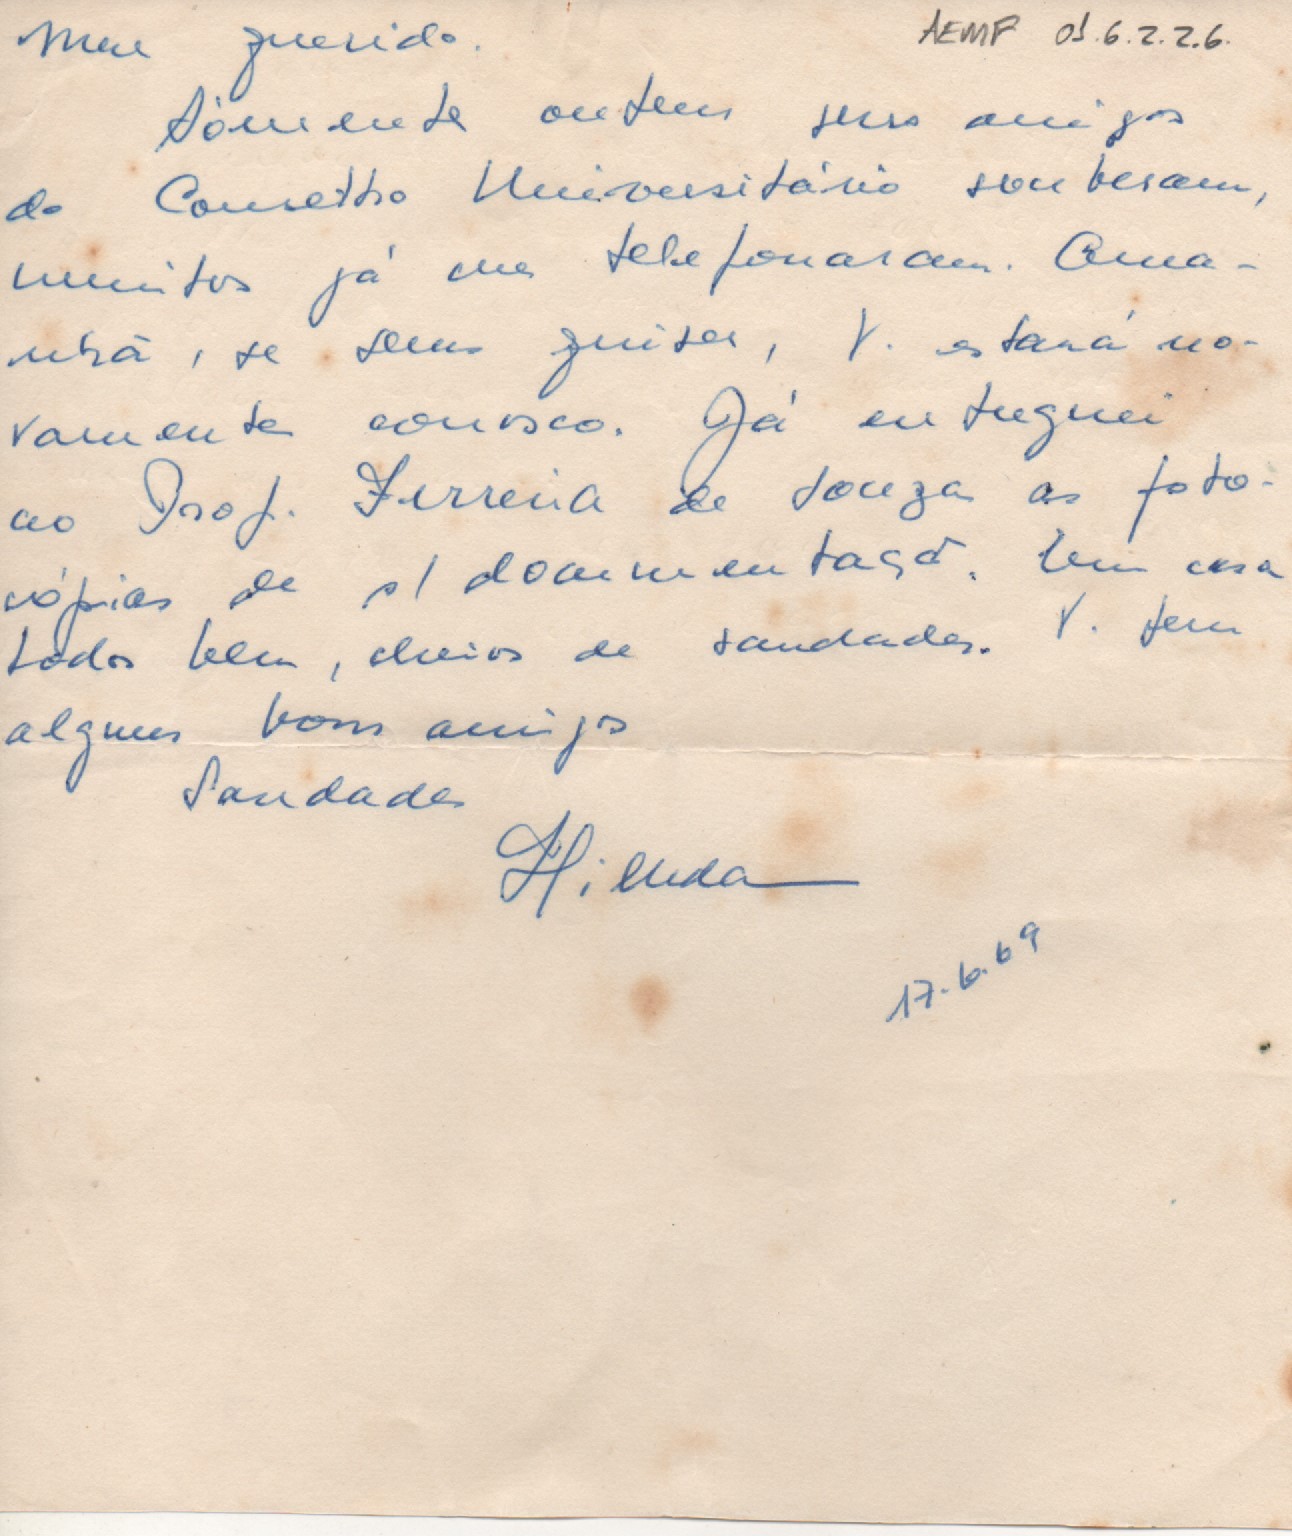 AEMP 01.6.2.2.6.
Meu querido.
Sòmente ontem seus amigos
do Conselho Universitário souberam,
muitos já me telefonaram. Ama-
nhã, se Deus quiser, V. estará no-
vamente conosco. Já entreguei
ao Prof. Ferreira de Souza as foto-
cópias de s/ documentação. Em casa
todos bem, cheios de saudades. V. tem
alguns bons amigos
Saudades
Hilda
17.6.69